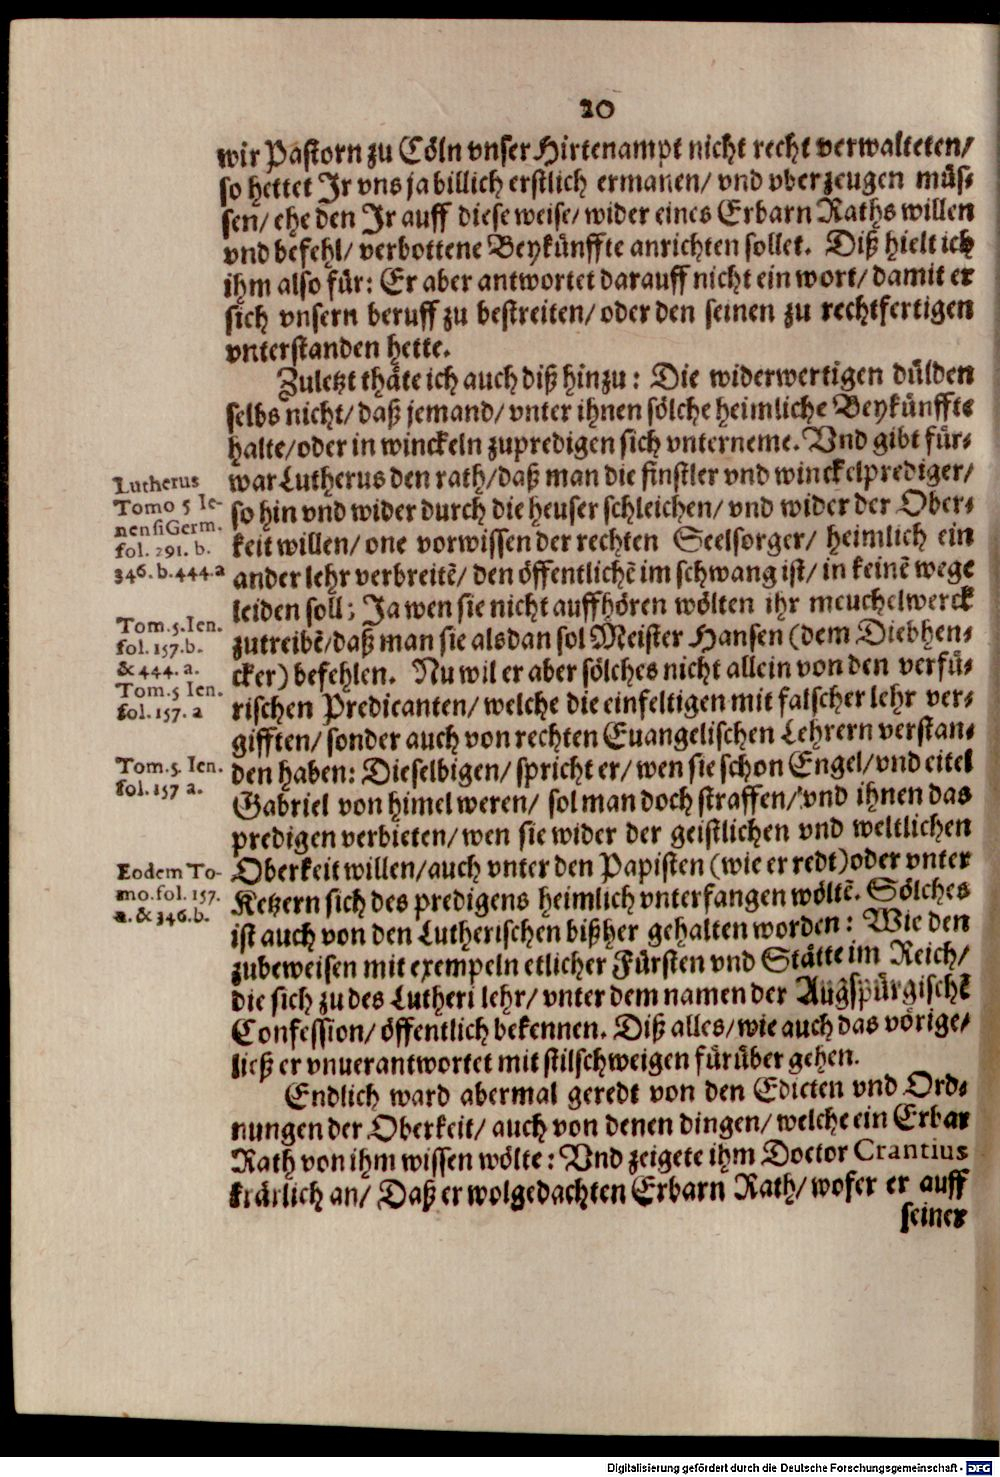 20
wir Pastorn zu Cöln vnser Hirtenampt nicht recht verwalteten/
so hettet Jr vns ja billich erstlich ermanen/ vnd vberzeugen müs⸗
sen/ ehe den Jr auff diese weise/ wider eines Erbarn Raths willen
vnd befehl/ verbottene Beykünffte anrichten sollet. Diß hielt ich
ihm also für: Er aber antwortet darauff nicht ein wort/ damit er
sich vnsern beruff zu bestreiten/ oder den seinen zu rechtfertigen
vnterstanden hette.
Zuletzt thäte ich auch diß hinzu: Die widerwertigen dülden
selbs nicht/ daß jemand/ vnter ihnen sölche heimliche Beykünffte
halte/ oder in winckeln zupredigen sich vnterneme. Vnd gibt für⸗
war Lutherus den rath/ daß man die finstler vnd winckelprediger/
so hin vnd wider durch die heuser schleichen/ vnd wider der Ober⸗
keit willen/ one vorwissen der rechten Seelsorger/ heimlich ein
ander lehr verbreitē/ den öffentlichē im schwang ist/ in keinē wege
leiden soll; Ja wen sie nicht auffhören wölten ihr meuchelwerck
zutreibē/ daß man sie alsdan sol Meister Hansen (dem Diebhen⸗
cker) befehlen. Nu wil er aber sölches nicht allein von den verfü⸗
rischen Predicanten/ welche die einfeltigen mit falscher lehr ver⸗
gifften/ sonder auch von rechten Euangelischen Lehrern verstan⸗
den haben: Dieselbigen/ spricht er/ wen sie schon Engel/ vnd eitel
Gabriel von himel weren/ sol man doch straffen/ vnd ihnen das
predigen verbieten/ wen sie wider der geistlichen vnd weltlichen
Oberkeit willen/ auch vnter den Papisten (wie er redt) oder vnter
Ketzern sich des predigens heimlich vnterfangen wöltē. Sölches
ist auch von den Lutherischen bißher gehalten worden: Wie den
zubeweisen mit exempeln etlicher Fürsten vnd Stätte im Reich/
die sich zu des Lutheri lehr/ vnter dem namen der Augspürgischē
Confession/ öffentlich bekennen. Diß alles/ wie auch das vörige/
ließ er vnuerantwortet mit stilschweigen fürüber gehen.
Endlich ward abermal geredt von den Edicten vnd Ord⸗
nungen der Oberkeit/ auch von denen dingen/ welche ein Erbar
Rath von ihm wissen wölte: Vnd zeigete ihm Doctor Crantius
klärlich an/ Daß er wolgedachten Erbarn Rath/ wofer er auff
seiner
Lutherus
Tomo 5 Ie-
nensi Germ.
fol. 291. b.
346. b. 444. a
Tom. 5. Ien.
fol. 157. b.
& 444. a.
Tom. 5 Ien.
fol. 157. a
Tom. 5. Ien.
fol. 157 a.
Eodem To-
mo. fol. 157.
a. & 346. b.
Digitalisierung gefördert durch die Deutsche Forschungsgemeinschaft - DFG